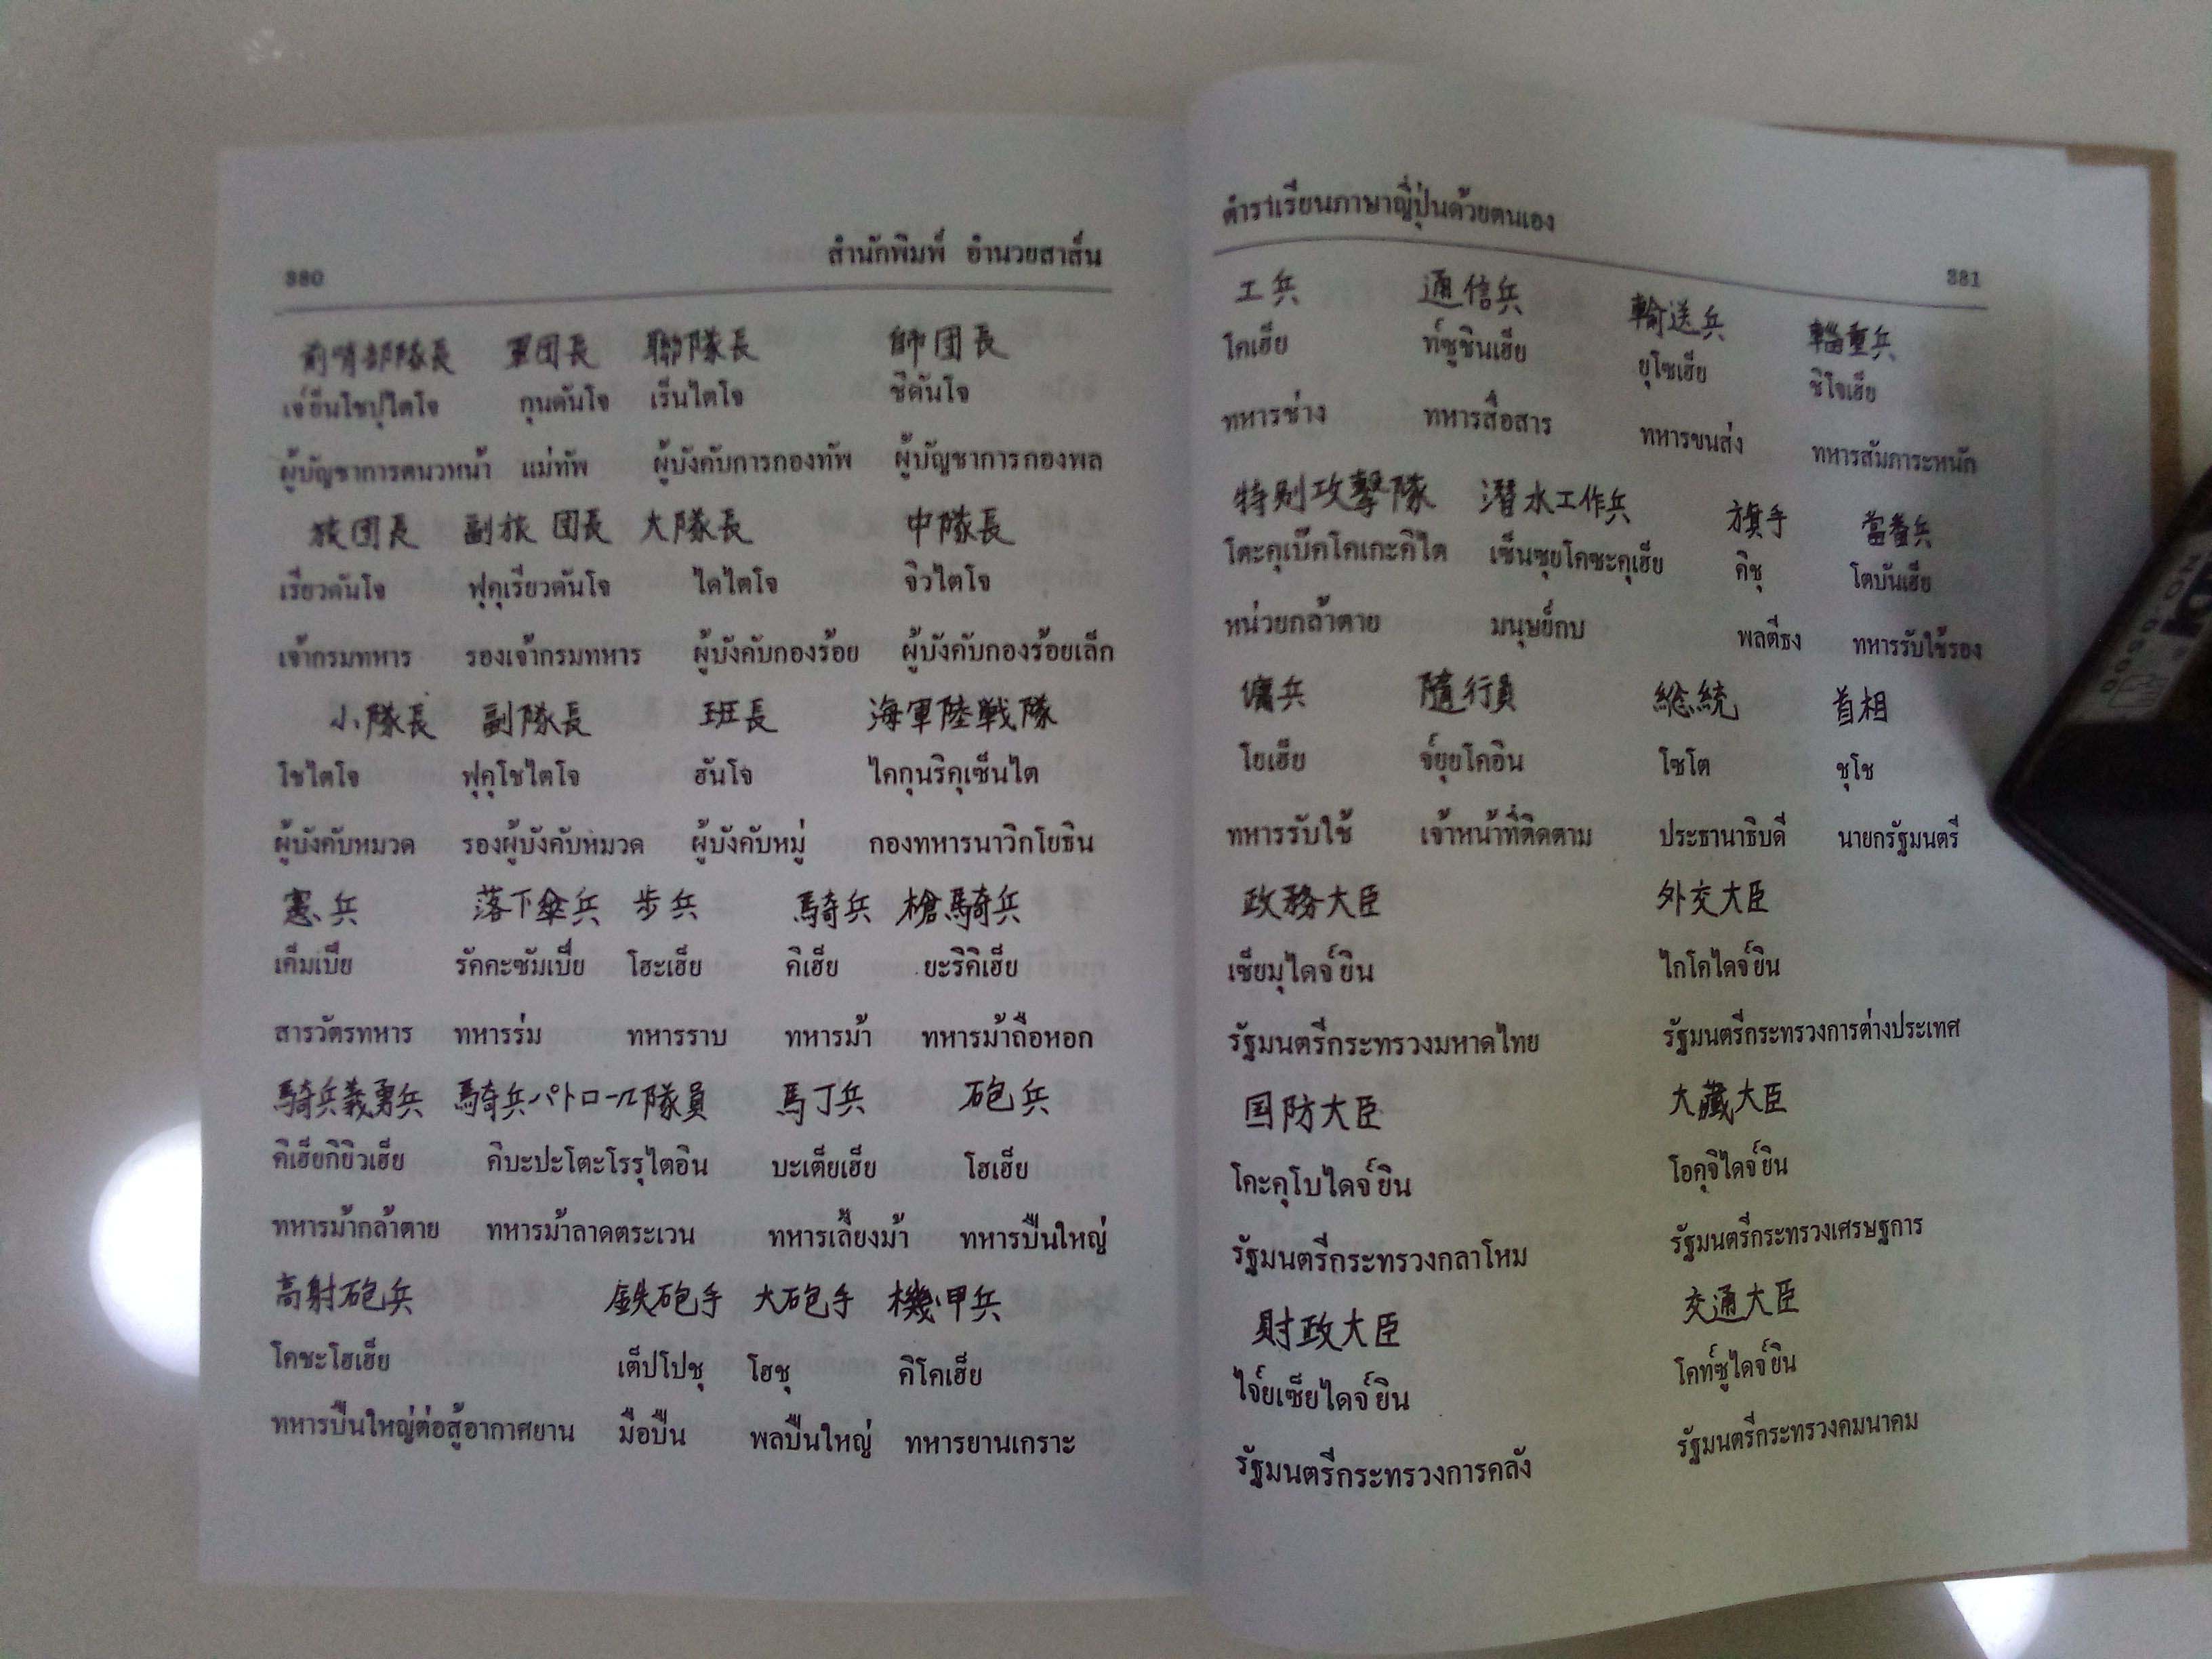 สำนักพิมพ์ อำนวยสาส์น
380
前哨部隊長 軍団長 聯隊長 師团長
เจ์ย็นโชปุไตโจ กุนดันโจ เร็นไตโจ ชิดันโจ
ผู้บัญชาการตนวหน้า แม่ทัพ ผู้บังคับการกองทัพ ผู้บัญชาการกองพล
旅团長 副旅团長 大隊長 中隊長
เรียวดันโจ ฟุคุเรียวดันโจ ไดไตโจ จิวไตโจ
เจ้ากรมทหาร รองเจ้ากรมทหาร ผู้บังคับกองร้อย ผู้บังคับกองร้อยเล็ก
小隊長 副隊長 班長 海軍陸戦隊
โชไตโจ ฟุคุโชไตโจ ฮันโจ ไคกุนริคุเซ็นไต
ผู้บังคับหมวด รองผู้บังคับหมวด ผู้บังคับหมู่ กองทหารนาวิกโยธิน
憲兵 落下傘兵 步兵 騎兵 槍騎兵
เค็มเบีย รัคคะซัมเบีย โฮะเฮ็ย คิเฮ็ย ยะริคิเฮ็ย
สารวัตรทหาร ทหารร่ม ทหารราบ ทหารม้า ทหารม้าถือหอก
騎兵義勇兵 騎兵パトロール隊員 馬丁兵 砲兵
คิเฮ็ยกิยิวเฮ็ย คิบะปะโตะโรรุไตอิน บะเต็ยเฮ็ย โฮเฮ็ย
ทหารม้ากล้าตาย ทหารม้าลาดตระเวน ทหารเลี้ยงม้า ทหารปืนใหญ่
高射砲兵 鉄砲手 大砲手 機甲兵
โคชะโฮเฮ็ย เต็ปโปชุ โฮชุ คิโคเฮ็ย
ทหารปืนใหญ่ต่อสู้อากาศยาน มือปืน พลปืนใหญ่ ทหารยานเกราะ
ตำราเรียนภาษาญี่ปุ่นด้วยตนเอง
381
工兵 通信兵 輸送兵 輜重兵
โคเฮ็ย ท์ซูชินเฮ็ย ยุโซเฮ็ย ชิโจเฮ็ย
ทหารช่าง ทหารสื่อสาร ทหารขนส่ง ทหารสัมภาระหนัก
特別攻撃隊 潜水工作兵 旗手 當番兵
โตะคุเบ็คโคเกะคิไต เซ็นซุยโคซะคุเฮ็ย คิชุ โตบันเฮ็ย
หน่วยกล้าตาย มนุษย์กบ พลตีธง ทหารรับใช้รอง
傭兵 隨行員 総統 首相
โยเฮ็ย จ์ยุยโคอิน โซโต ชุโช
ทหารรับใช้ เจ้าหน้าที่ติดตาม ประธานาธิบดี นายกรัฐมนตรี
政務大臣 外交大臣
เซ็ยมุไดจ์ยิน ไกโคไดจ์ยิน
รัฐมนตรีกระทรวงมหาดไทย รัฐมนตรีกระทรวงการต่างประเทศ
国防大臣 大藏大臣
โคะคุโบไดจ์ยิน โอคุจิไดจ์ยิน
รัฐมนตรีกระทรวงกลาโหม รัฐมนตรีกระทรวงเศรษฐการ
財政大臣 交通大臣
ไจ์ยเซ็ยไดจ์ยิน โคท์ซูไดจ์ยิน
รัฐมนตรีกระทรวงการคลัง รัฐมนตรีกระทรวงคมนาคม